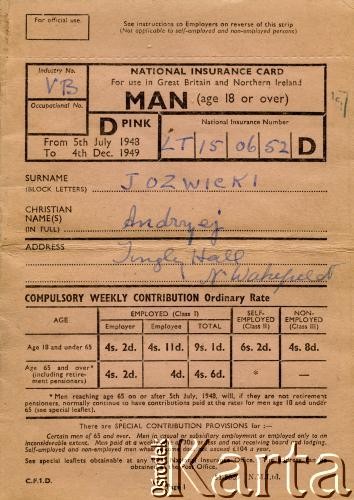 For official use.
See instructions to Employers on reverse of this strip
(Not applicable to self-employed and non-employed persons)
Industry No.
VB
Occupational No.
NATIONAL INSURANCE CARD
For use in Great Britain and Northern Ireland
MAN (age 18 or over)
D PINK
From 5th July 1948
To 4th Dec. 1949
National Insurance Number
LT 15 06 52 D
SURNAME
(BLOCK LETTERS)
JOZWICKI
CHRISTIAN
NAME(S)
(IN FULL)
Andrzej
ADDRESS
Tingly Hall
Nr Wakefield
COMPULSORY WEEKLY CONTRIBUTION Ordinary Rate
AGE
EMPLOYED (Class I)
SELF-EMPLOYED (Class II)
NON-EMPLOYED (Class III)
Employer Employee TOTAL
Age 18 and under 65 4s. 2d. 4s. 11d. 9s. 1d. 6s. 2d. 4s. 8d.
Age 65 and over* (including retirement pensioners) 4s. 2d. 4d. 4s. 6d. * —
*Men reaching age 65 on or after 5th July, 1948, will, if they are not retirement
pensioners, normally continue to have contributions paid at the rates for men age 18 and under
65 (see special leaflet).
There are SPECIAL CONTRIBUTION PROVISIONS for :—
Certain men of 65 and over. Men in casual or subsidiary employment or employed only to an
inconsiderable extent. Men paid at a weekly
and not receiving board and lodging.
Self-employed and non-employed men whose
does not exceed £104 a year.
See special leaflets obtainable at any
National Insurance Office.
obtained at the Post Office.
C.F.I.D.
Page 1
ośrodek
Karta